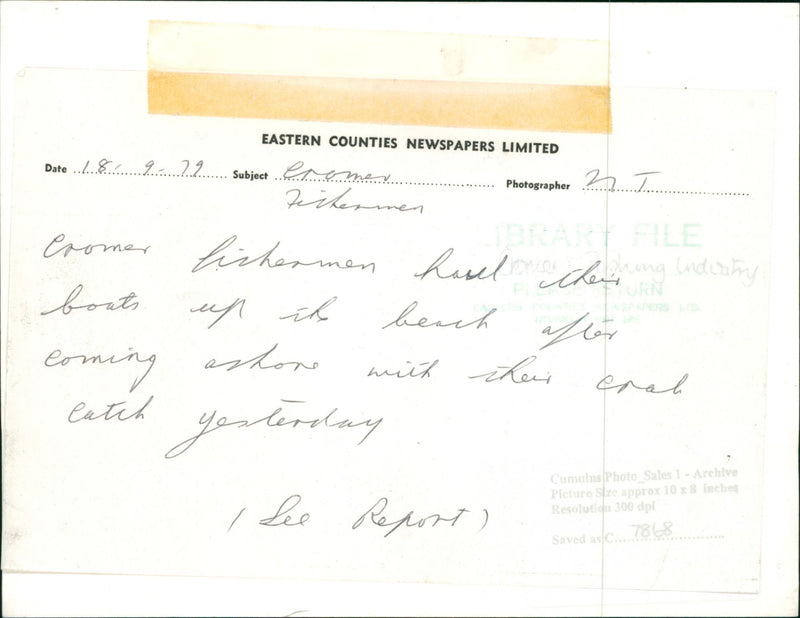 EASTERN COUNTIES NEWSPAPERS LIMITED
Date 18. 9. 79 Subject Cromer Photographer N T
Fishermen
LIBRARY FILE
Cromer Fishing Industry
PLEASE RETURN
EASTERN COUNTIES NEWSPAPERS LTD.
Cromer fishermen haul their
boats up the beach after
coming ashore with their crab
catch yesterday
(See Report)
Cumulus Photo_Sales 1 - Archive
Picture Size approx 10 x 8 inches
Resolution 300 dpi
Saved as C 7868